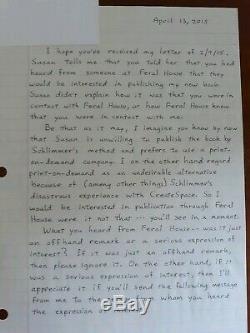 April 13, 2015
I hope you've received my letter of 2/7/15.
Susan tells me that you told her that you had
heard from someone at Feral House that they
would be interested in publishing my new book.
Susan didn't explain how it was that you were in
contact with Feral House, or how Feral House knew
that you were in contact with me.
Be that as it may, I imagine you know by now
that Susan is unwilling to publish the book by
Schlimmer's method and prefers to use a print-
on-demand company. I on the other hand regard
print-on-demand as an undesirable alternative
because of (among other things) Schlimmer's
disastrous experience with CreateSpace. So I
would be interested in publication through Feral
House were it not that ... you'll see in a moment.
What you heard from Feral House—was it just an
offhand remark or a serious expression of
interest? If it was just an offhand remark,
then please ignore it. On the other hand, if it
was a serious expression of interest, then I'll
appreciate it if you'll send the following message
from me to the whom you heard
the expression of